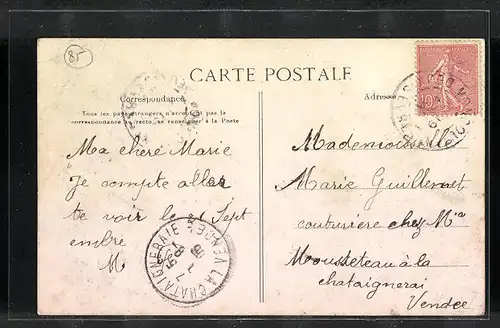 85
CARTE POSTALE
Correspondance
Tous les pays étrangers n'acceptent pas le
correspondance au recto, se renseigner à la Poste
Ma chere Marie
Je compte aller
te voir le 21 Sept
embre
M
Adresse
Mademoiselle
Marie Guillemet
couturière chez Me
Mousseteau à la
chataignerai
Vendee
LA CHATAIGNERAIE VENDÉE
10